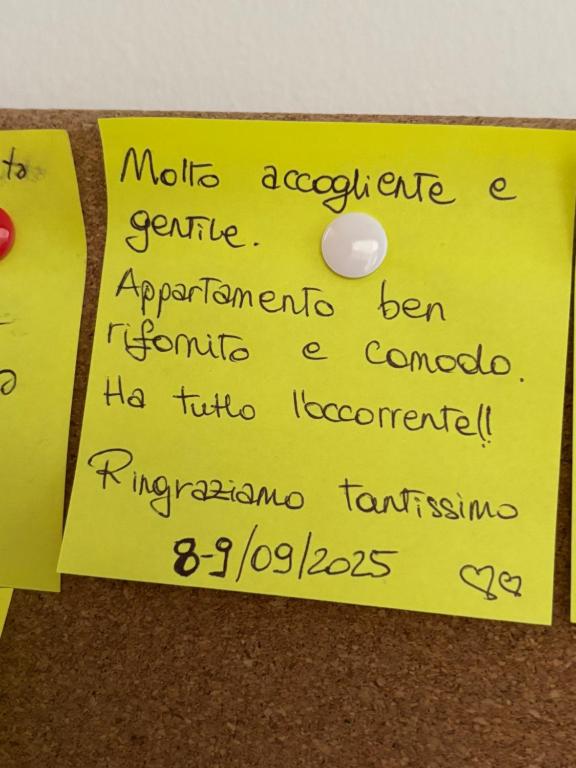 Molto accogliente e
gentile.
Appartamento ben
rifornito e comodo.
Ha tutto l'occorrente!!
Ringraziamo tantissimo
8-9/09/2025
to